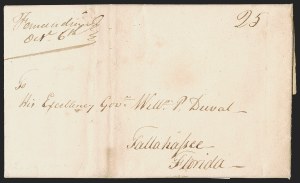 Fernandina
Oct. 6th
25
To
His Excellency Govr. Wm. P. Duval
Tallahassee
Florida